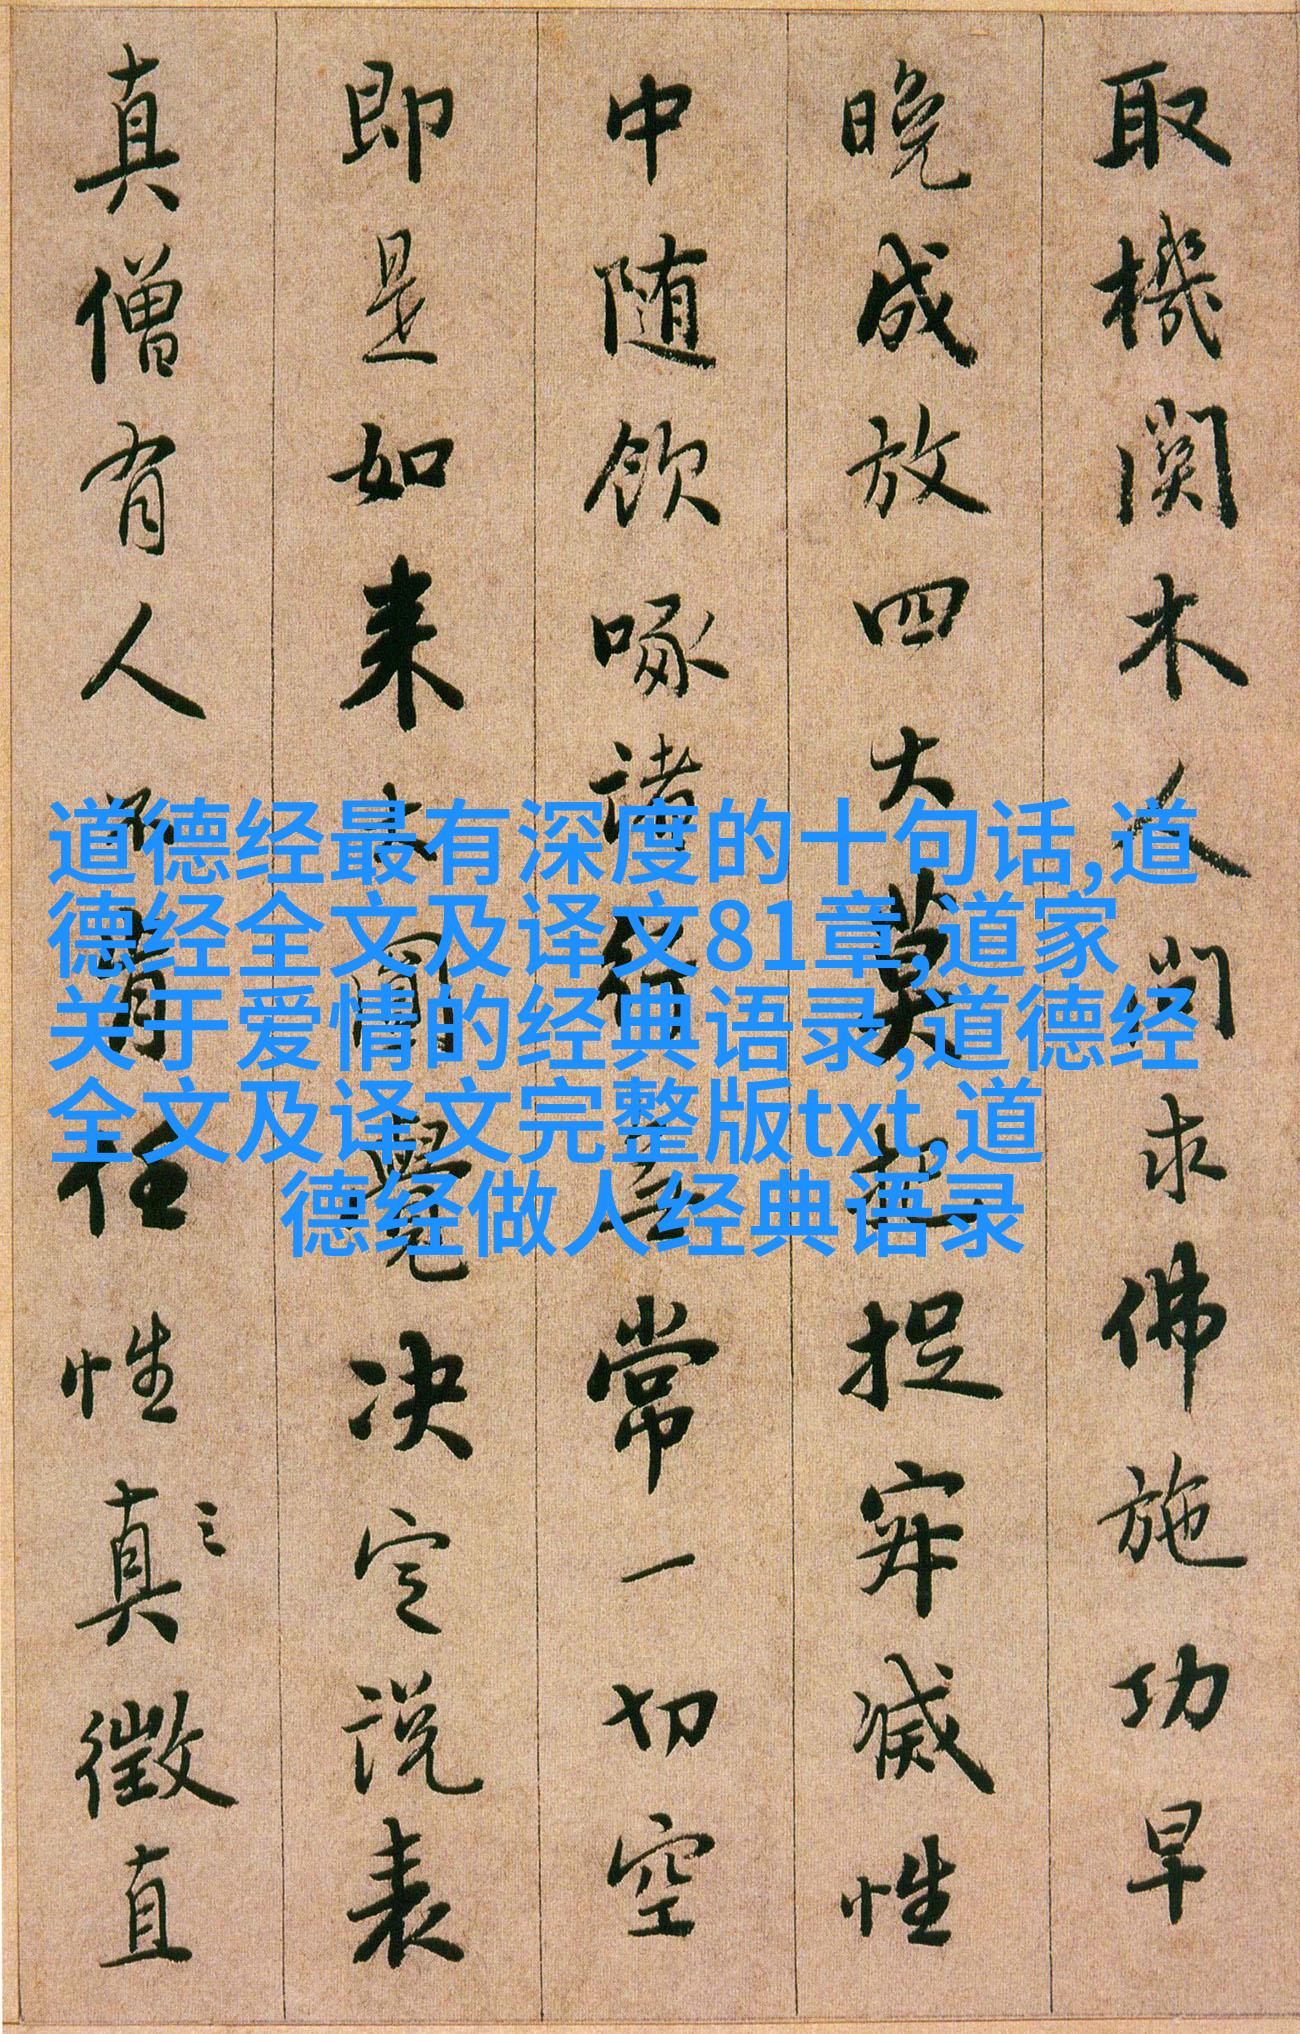 取機関木人問求佛施功早
晚成放四大莫把捉寂滅性
中随飲啄諸行無常一切空
即是如来大圓覺决定説表
真僧有人不肯任性真徵直
道德经最有深度的十句话,道
德经全文及译文81章,道家
关于爱情的经典语录,道德经
全文及译文完整版txt,道
德经做人经典语录